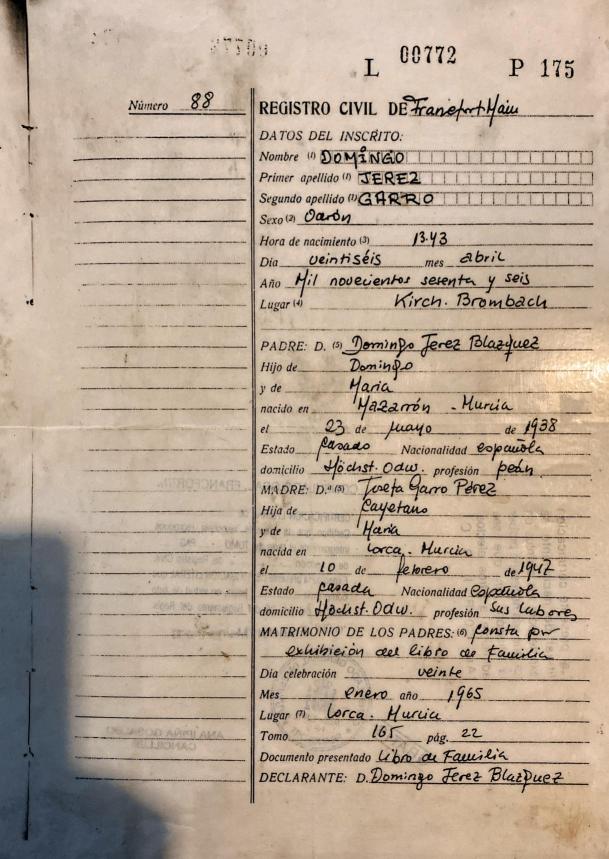 L 00772 P 175
Número 88
REGISTRO CIVIL DE Francfort Main
DATOS DEL INSCRITO:
Nombre (1) DOMINGO
Primer apellido (1) JEREZ
Segundo apellido (1) GARRO
Sexo (2) Varón
Hora de nacimiento (3) 13.43
Día veintiséis mes abril
Año Mil novecientos sesenta y seis
Lugar (4) Kirch. Brombach
PADRE: D. (5) Domingo Jerez Blazquez
Hijo de Domingo
y de Maria
nacido en Mazarrón - Murcia
el 23 de mayo de 1938
Estado casado Nacionalidad española
domicilio Höchst. Odw. profesión peón
MADRE: D.ª (5) Josefa Garro Pérez
Hija de Cayetano
y de Maria
nacida en Lorca. Murcia
el 10 de febrero de 1947
Estado casada Nacionalidad española
domicilio Höchst. Odw. profesión sus labores
MATRIMONIO DE LOS PADRES: (6) Consta por
exhibición del libro de Familia
Día celebración veinte
Mes enero año 1965
Lugar (7) Lorca. Murcia
Tomo 165 pág. 22
Documento presentado Libro de Familia
DECLARANTE: D. Domingo Jerez Blazquez